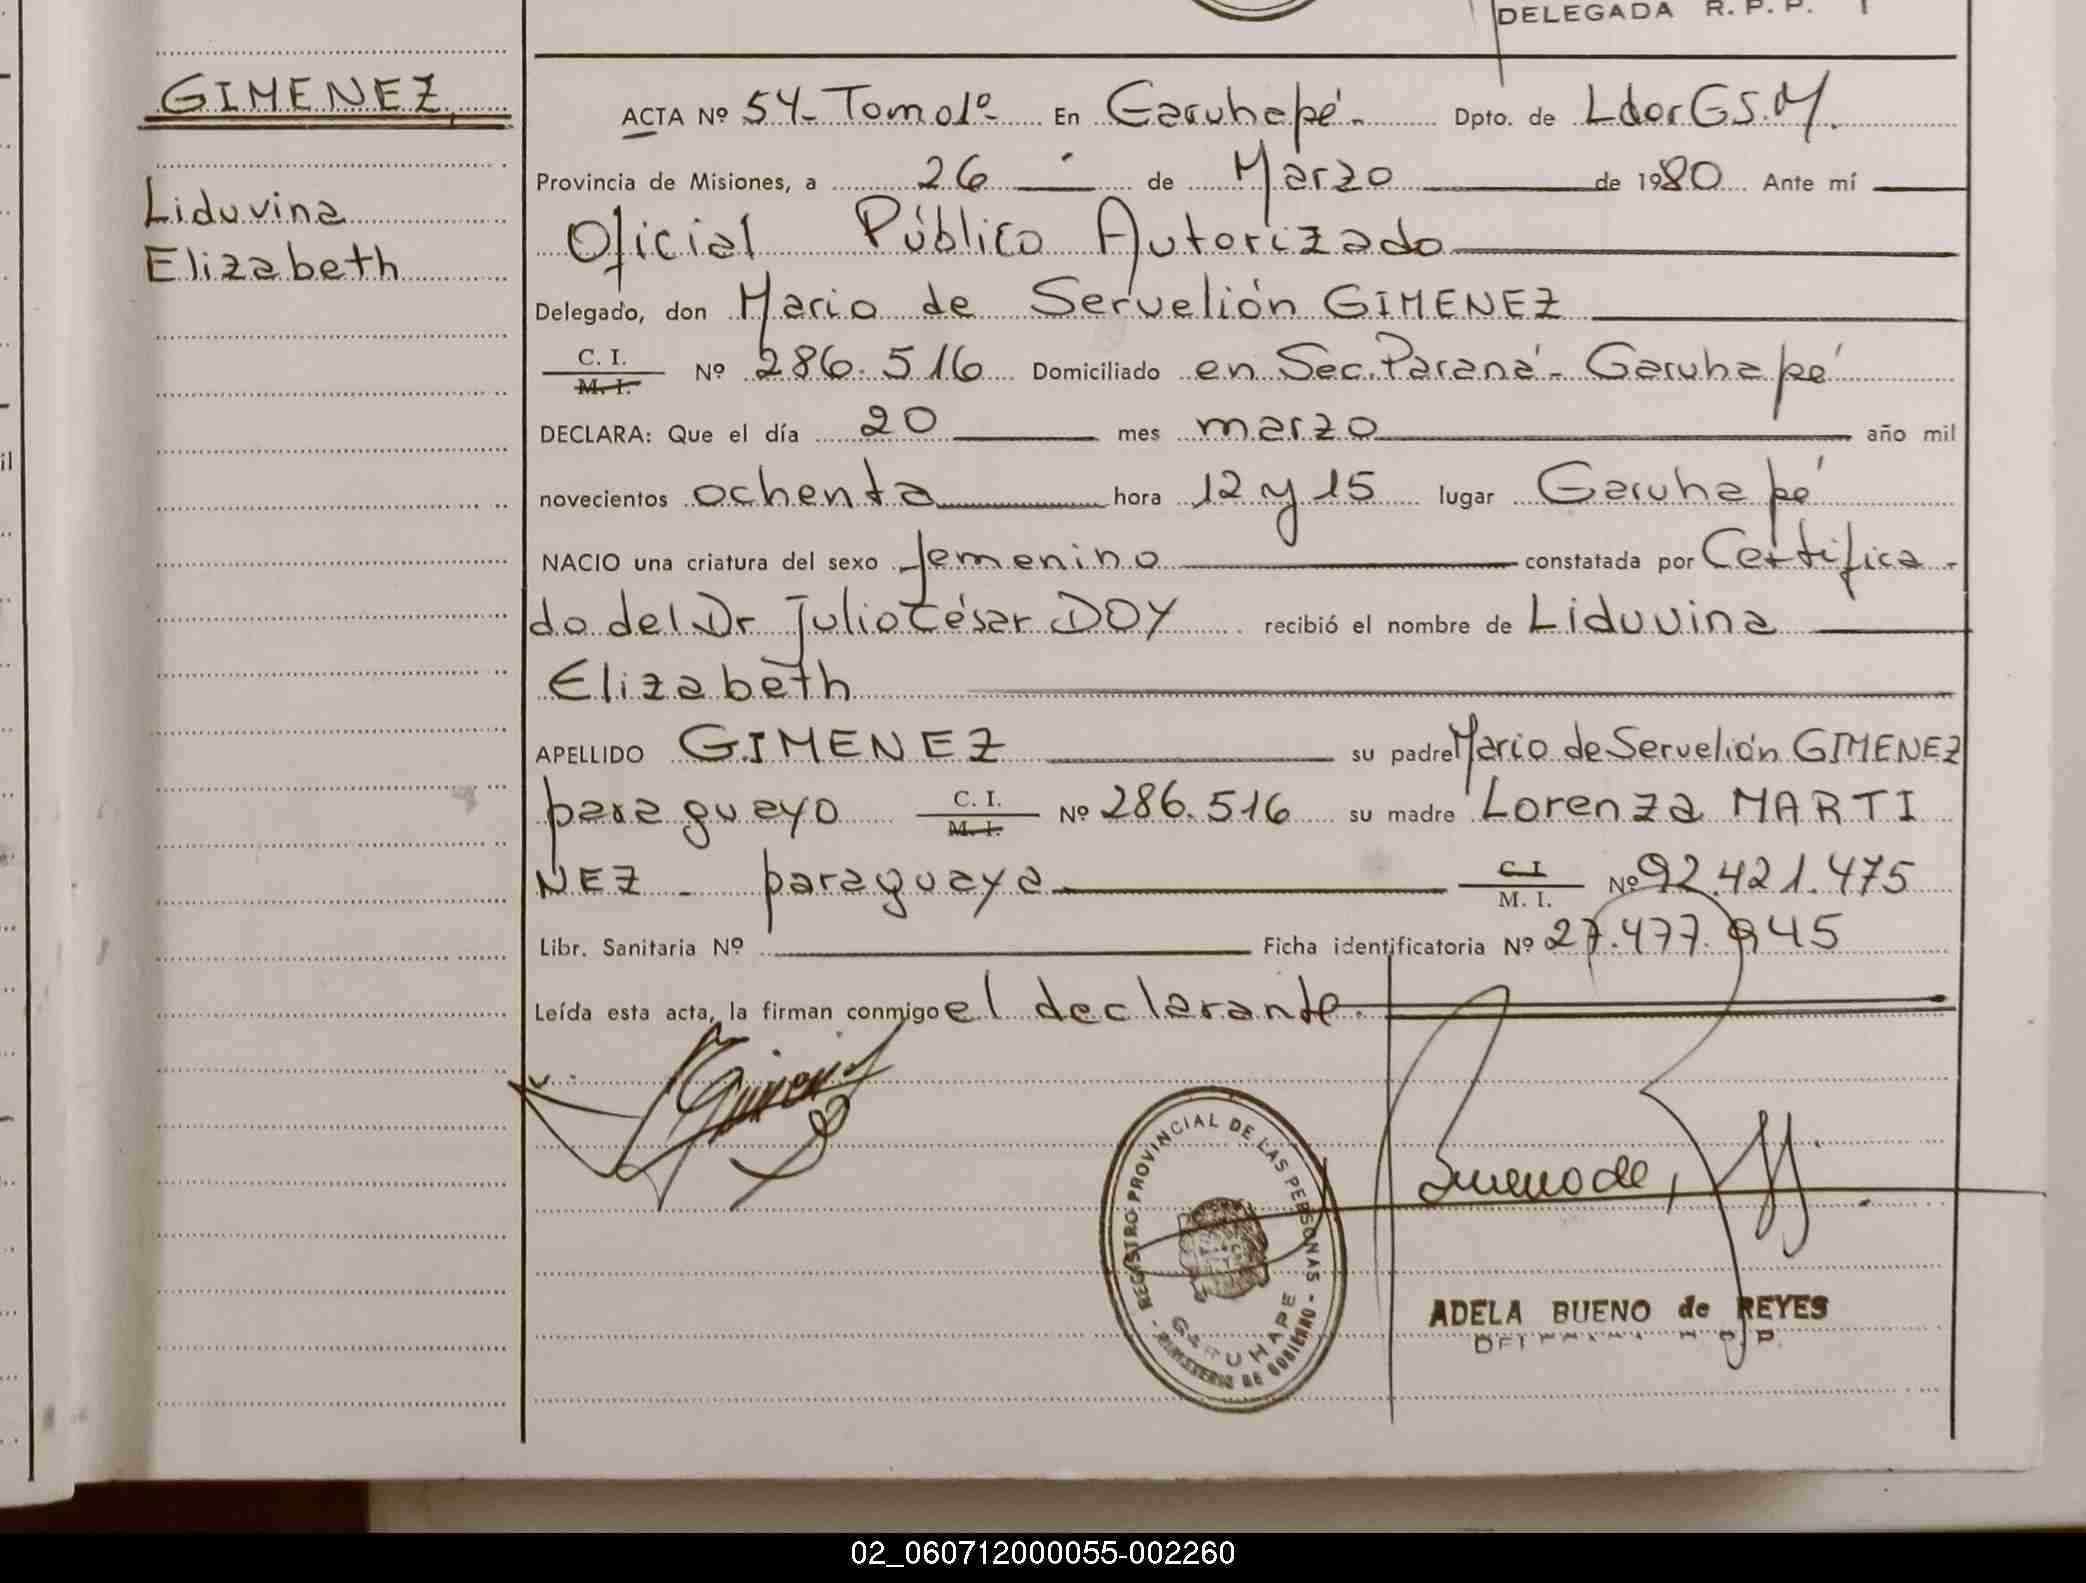 DELEGADA R. P. P.
GIMENEZ
Liduvina
Elizabeth
ACTA Nº 54- Tomo 1º En Garuhapé. Dpto. de Ldor G.S.M.
Provincia de Misiones, a 26 de Marzo de 1980 Ante mí
Oficial Público Autorizado
Delegado, don Mario de Servelión GIMENEZ
C. I. M. I. Nº 286.516 Domiciliado en Sec. Paraná- Garuhapé
DECLARA: Que el día 20 mes marzo año mil
novecientos ochenta hora 12 y 15 lugar Garuhapé
NACIO una criatura del sexo femenino constatada por Certifica-
do del Dr Julio César DOY recibió el nombre de Liduvina
Elizabeth
APELLIDO GIMENEZ su padre Mario de Servelión GIMENEZ
paraguayo C. I. M. I. Nº 286.516 su madre Lorenza MARTI
NEZ - paraguaya C I M. I. Nº 92.421.475
Libr. Sanitaria Nº Ficha identificatoria Nº 27.477.945
Leída esta acta, la firman conmigo el declarante.
REGISTRO PROVINCIAL DE LAS PERSONAS - MINISTERIO DE GOBIERNO -
GARUHAPE
Bueno de
ADELA BUENO de REYES
02_060712000055-002260